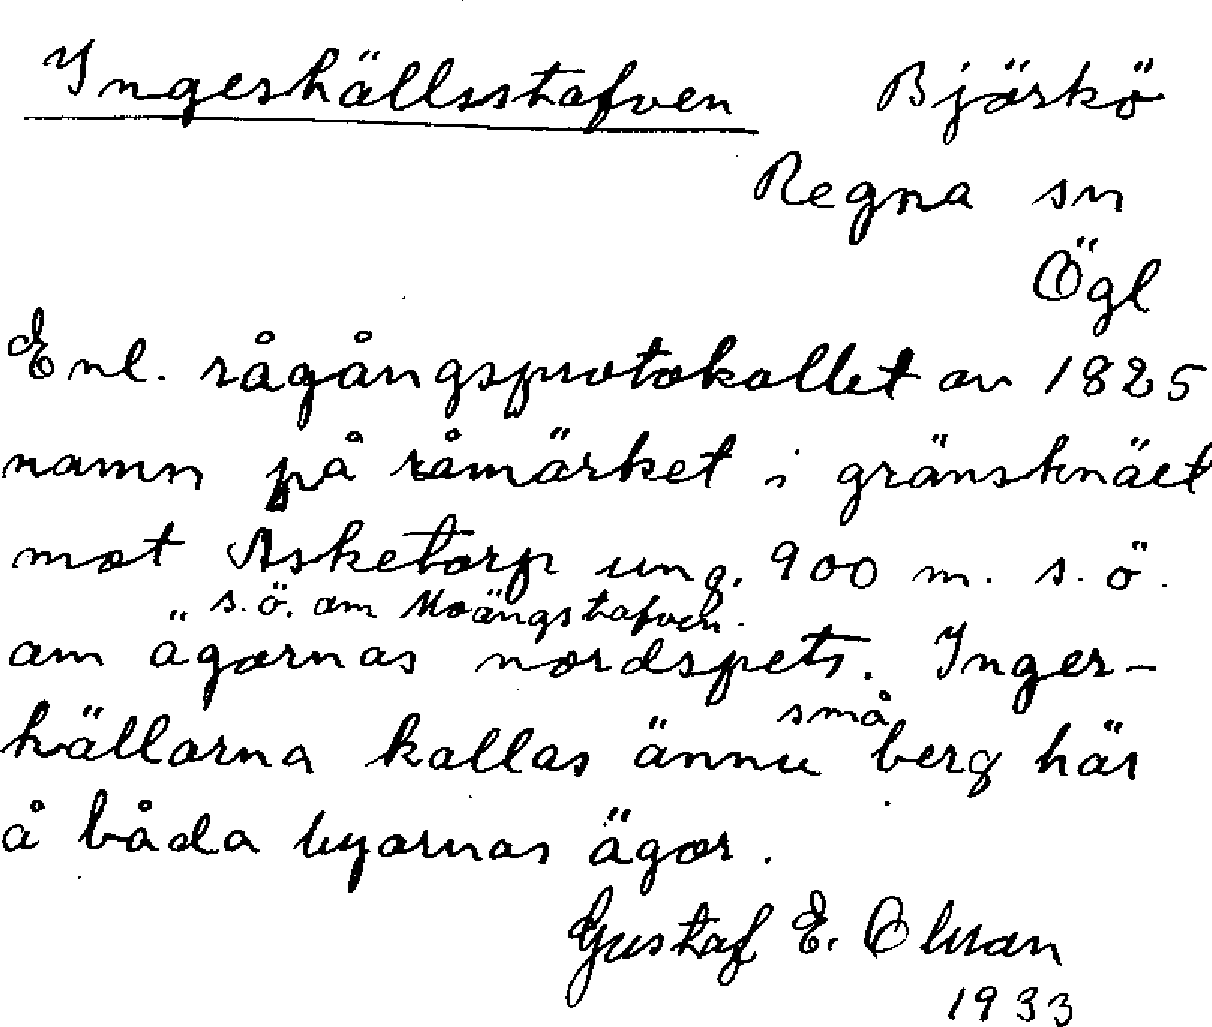 Ingershällsstafven Björkö
Regna sn
Ögl
Enl. rågångsprotokollet av 1825
namn på råmärket i gränsknäet
mot Asketorp ung. 900 m. s.ö.
s.ö. om Moängstafven.
om ägornas nordspets. Inger-
hällarna kallas ännu små berg här
å båda byarnas ägor.
Gustaf E. Olsson
1933